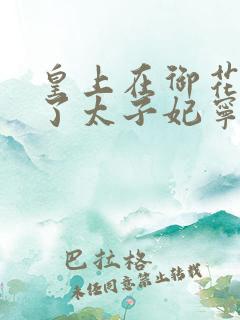 皇上在御花
了太子妃寧
巴拉格
未任同意禁止转载